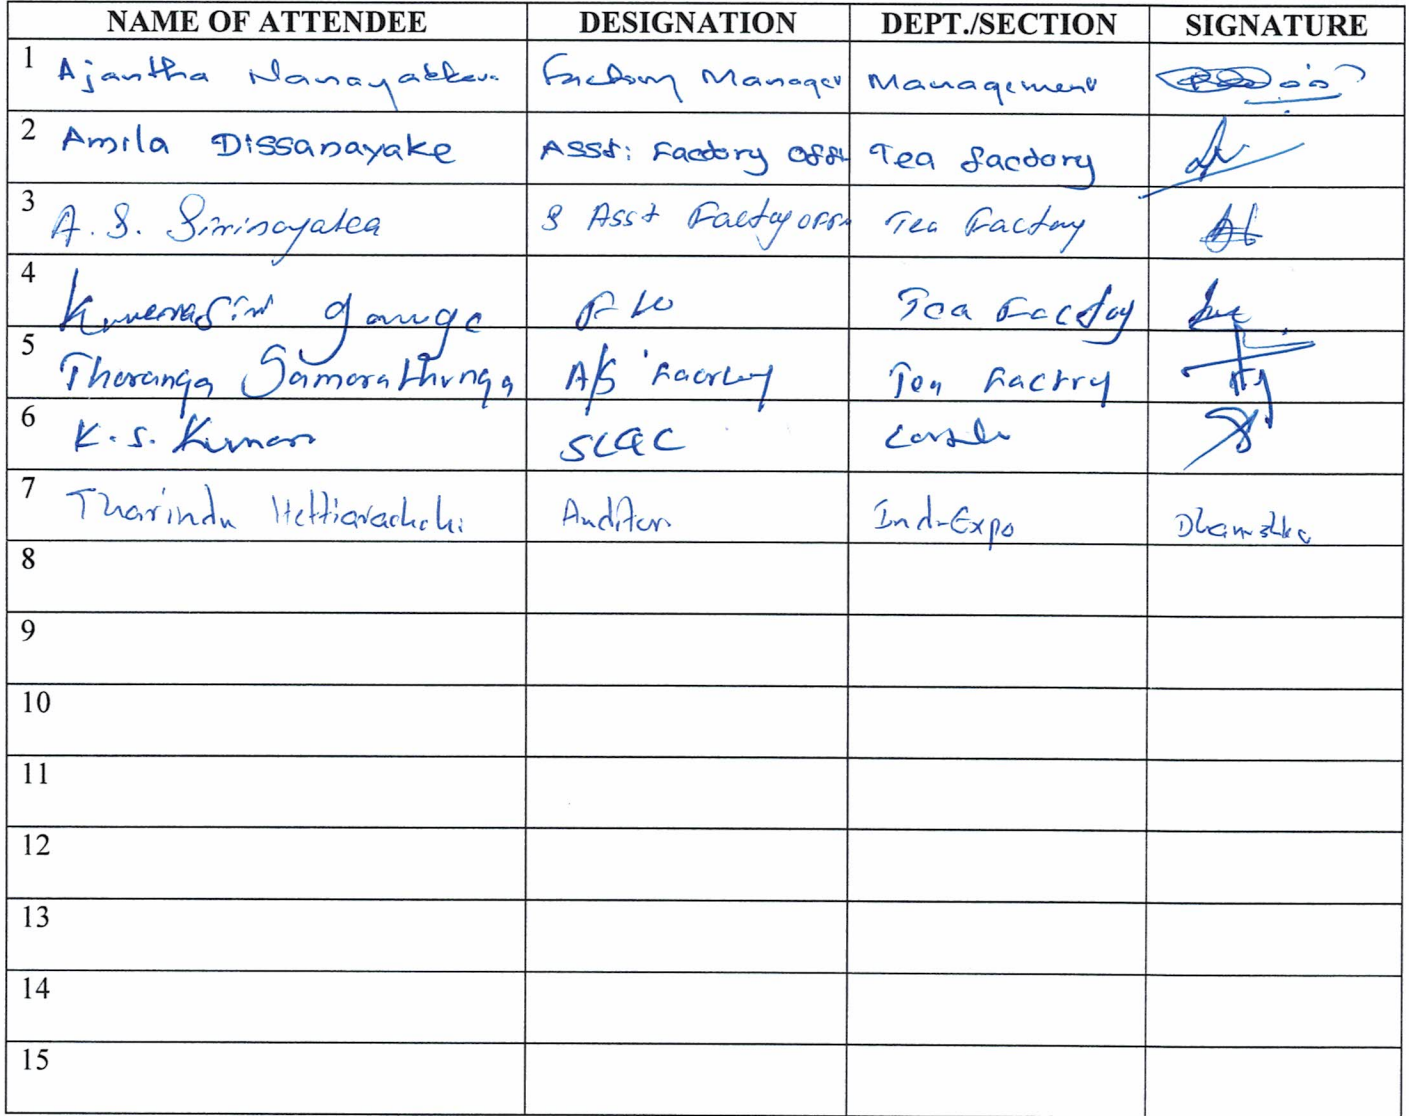 NAME OF ATTENDEE DESIGNATION DEPT./SECTION SIGNATURE
1 Ajantha Nanayakkara Factory Manager Management
2 Amila Dissanayake Asst: Factory Tea factory
3 A. S. Asst Factory Tea Factory
4 Tea Factory
5 Tharanga Samarathunga A/S Tea Factry
6 K. S. Kumar
7 Tharindu Hettiarachchi Auditor Ind-Expo
8
9
10
11
12
13
14
15